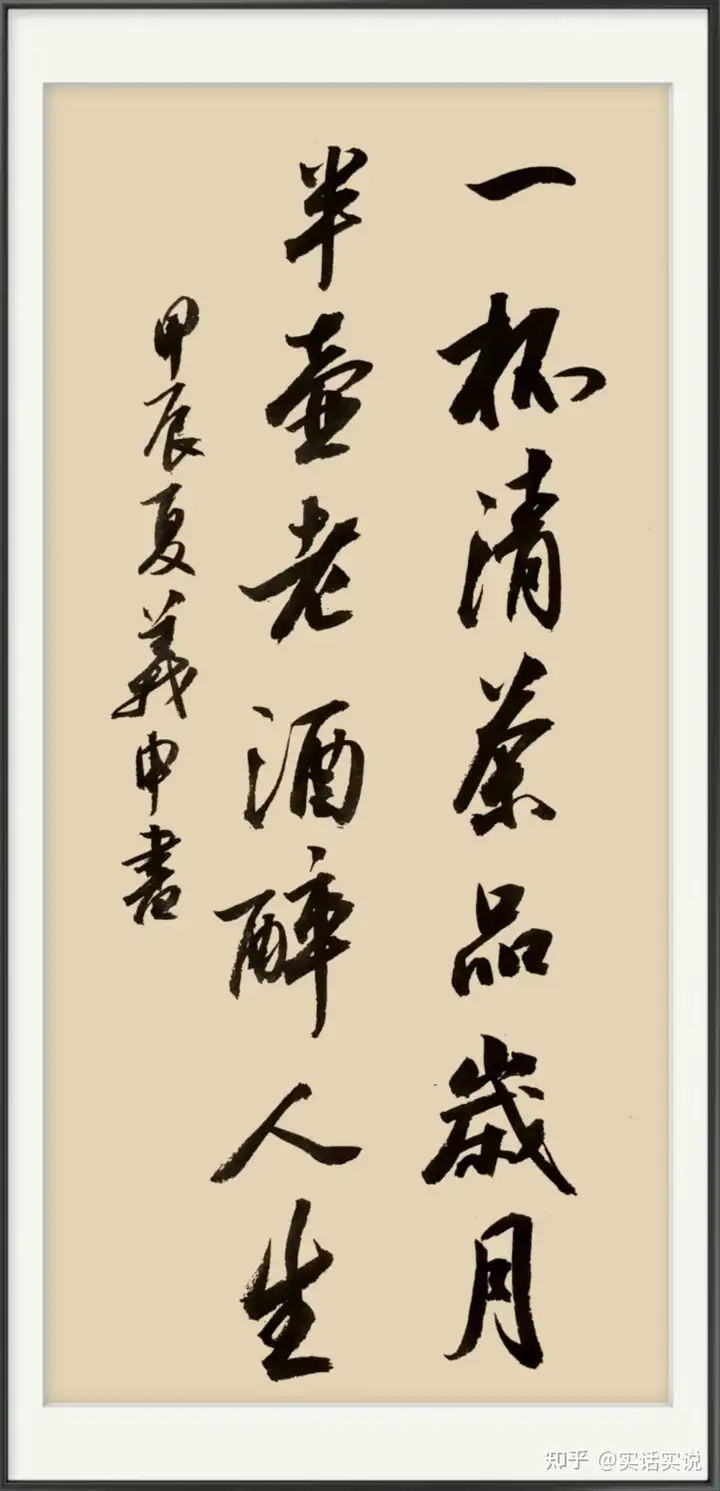 一杯清茶品歲月
半壺老酒醉人生
甲辰夏義申書
知乎 @实话实说